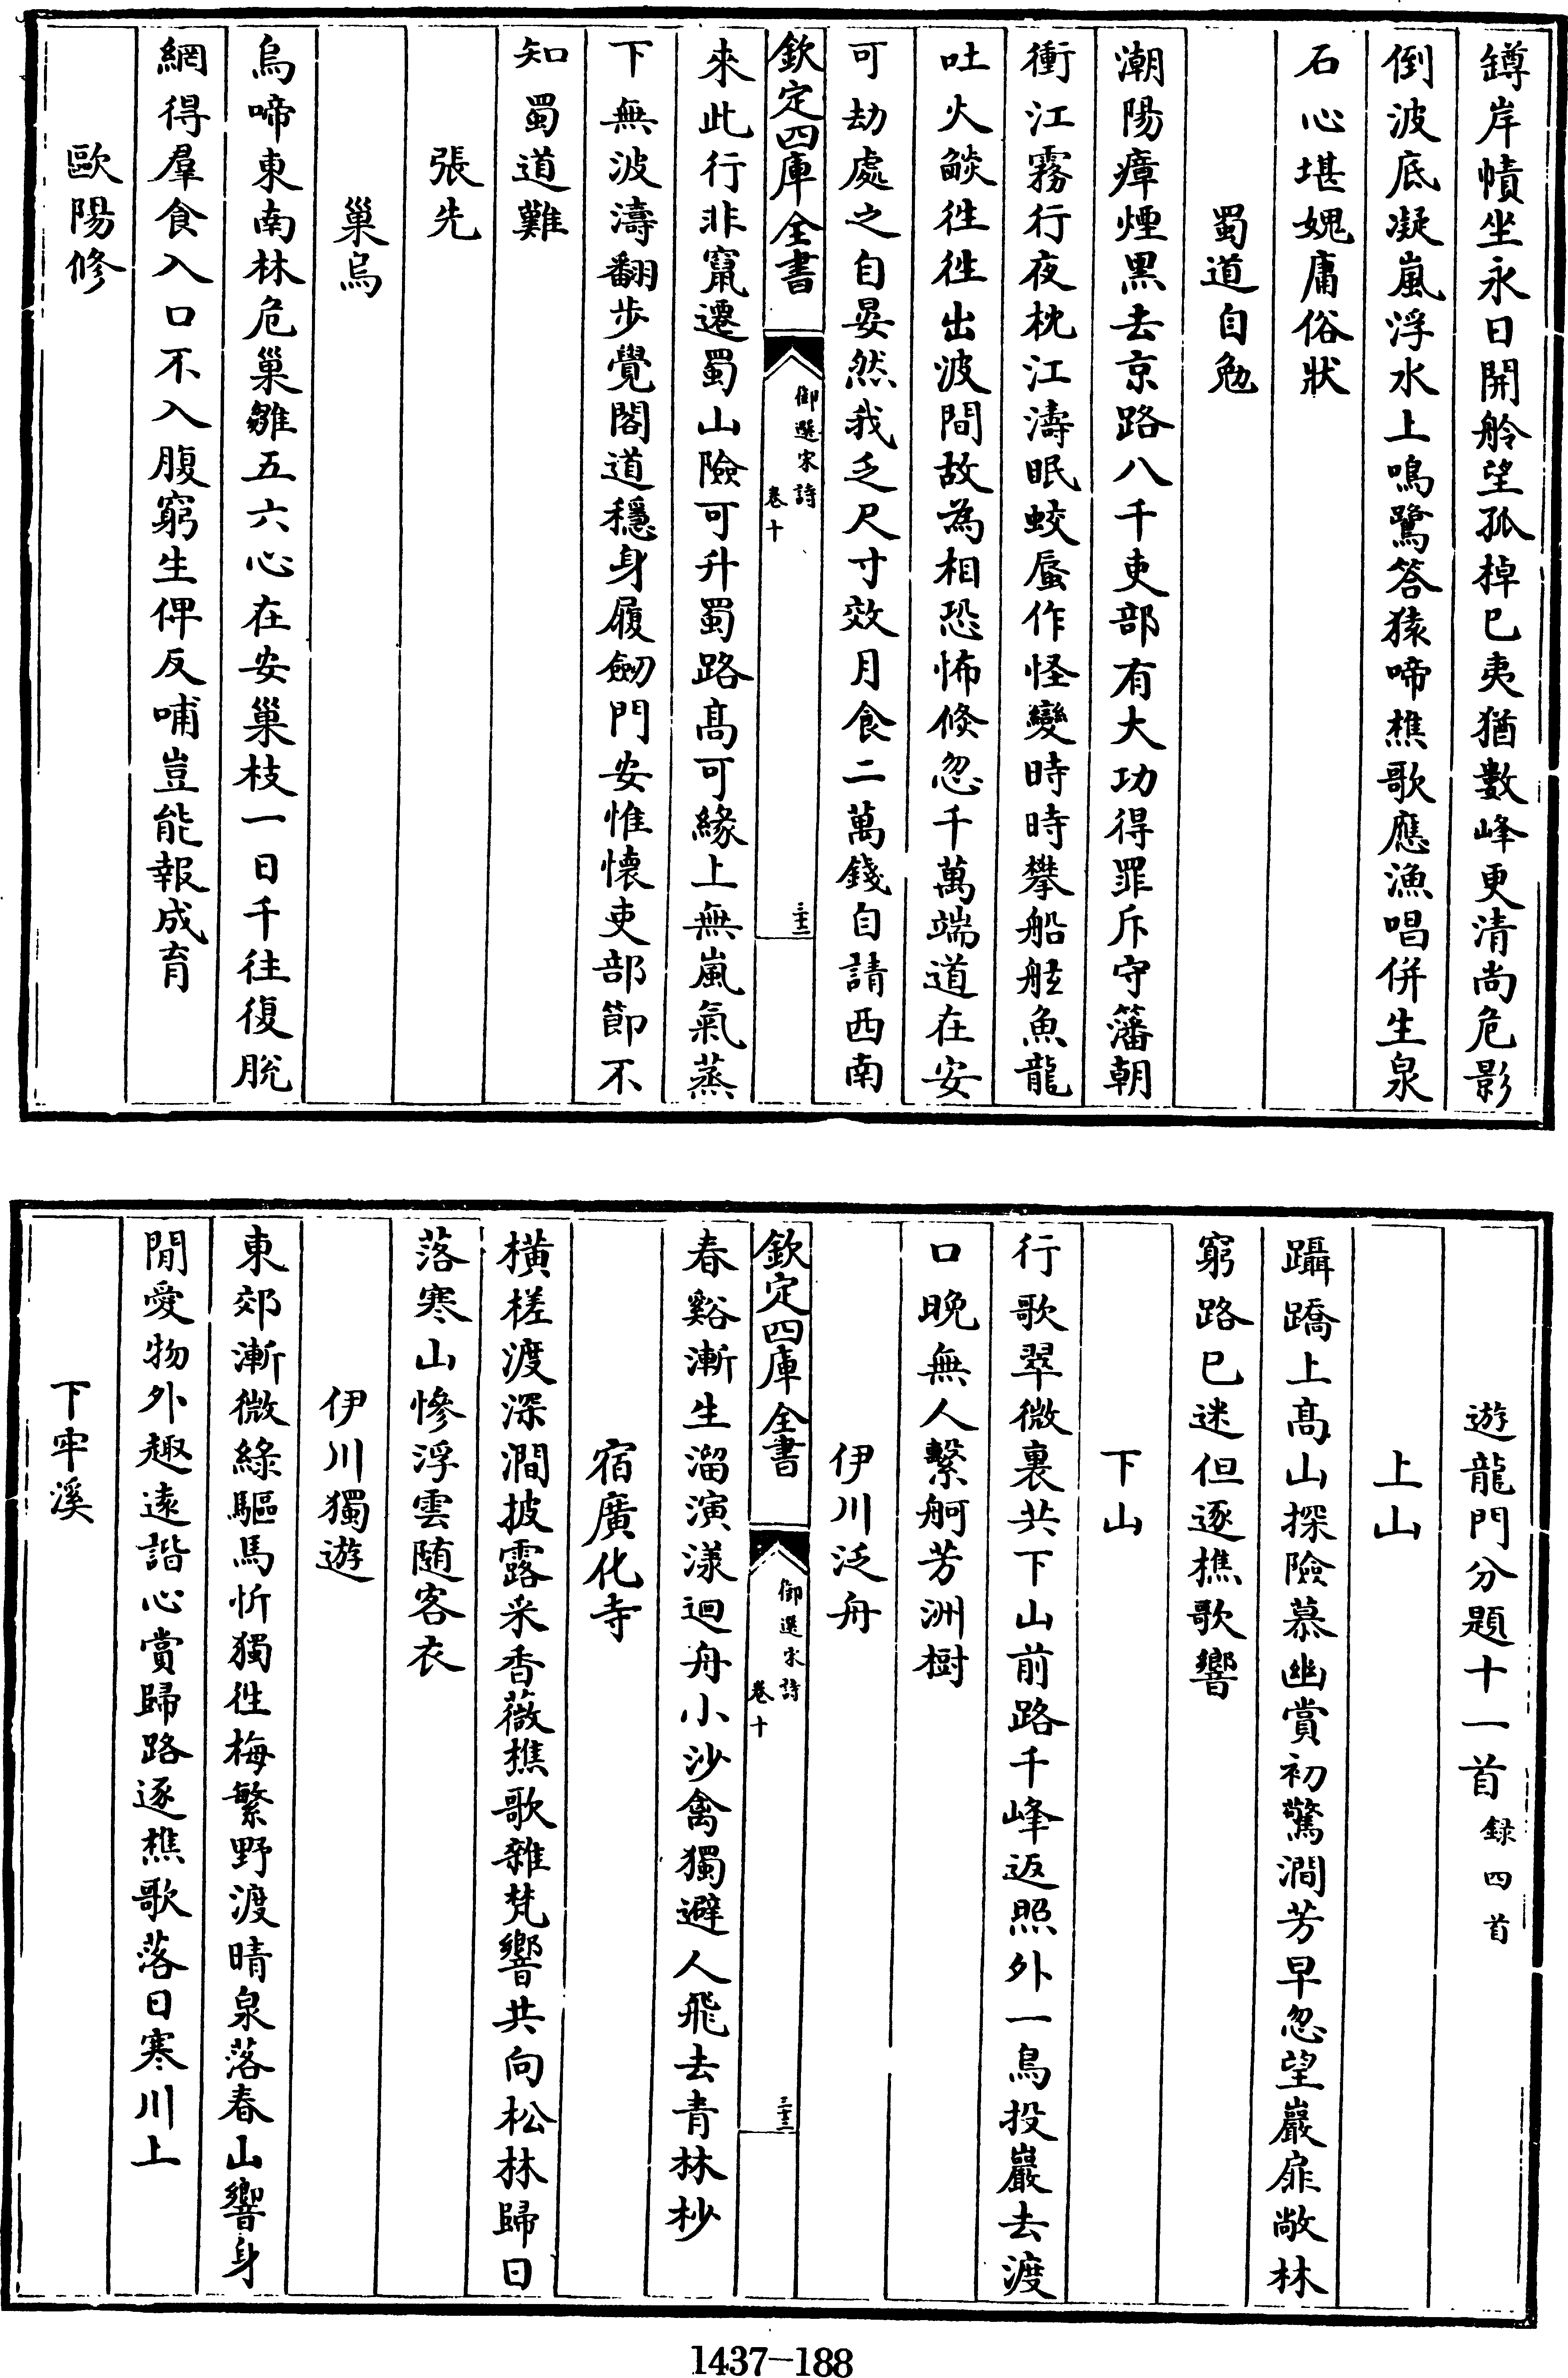 罇岸幘坐永日開舲望孤棹巳夷猶數峰更清尚危影
倒波底凝嵐浮水上鳴鷺答猿啼樵歌應漁唱併生泉
石心堪媿庸俗狀
蜀道自勉
潮陽瘴煙黑去京路八千吏部有大功得罪斥守藩朝
衝江霧行夜枕江濤眠蛟蜃作怪變時時攀船舷魚龍
吐火燄徃徃出波間故為相恐怖倐忽千萬端道在安
可劫處之自晏然我乏尺寸效月食二萬錢自請西南
欽定四庫全書
御選宋詩
卷十
三十三
來此行非竄遷蜀山險可升蜀路髙可緣上無嵐氣蒸
下無波濤翻步覺閣道穩身履劒門安惟懷吏部節不
知蜀道難
張先
巢烏
烏啼東南林危巢雛五六心在安巢枝一日千往復脫
網得羣食入口不入腹窮生俾反哺豈能報成育
歐陽修
遊龍門分題十一首録四首
上山
躡蹻上髙山探險慕幽賞初驚澗芳早忽望巖扉敞林
窮路已迷但逐樵歌響
下山
行歌翠微裏共下山前路千峰返照外一鳥投巖去渡
口晚無人繫舸芳洲樹
伊川泛舟
欽定四庫全書
御選宋詩
卷十
三十三
春谿漸生溜演漾迴舟小沙禽獨避人飛去青林杪
宿廣化寺
橫槎渡深澗披露采香薇樵歌雜梵響共向松林歸日
落寒山慘浮雲随客衣
伊川獨遊
東郊漸微綠驅馬忻獨徃梅繁野渡晴泉落春山響身
閒愛物外趣遠諧心賞歸路逐樵歌落日寒川上
下牢溪
1437-188